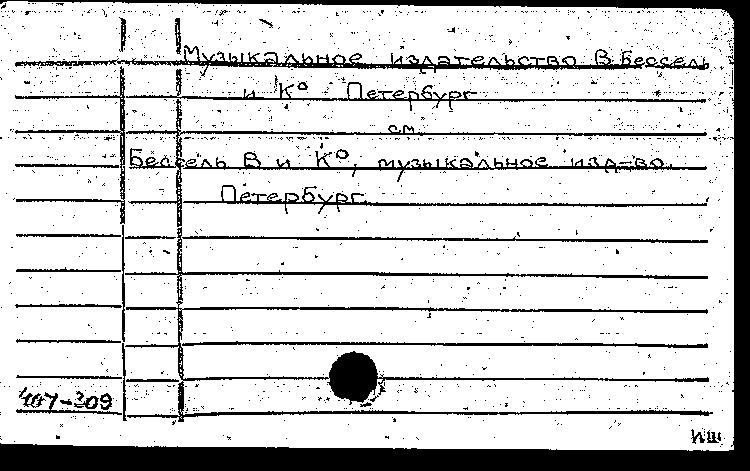 Музыкальное издательство В. Бессель
и К° Петербург
см.
Бессель В и К°, музыкальное изд-во.
Петербург.
407-309
ИШ